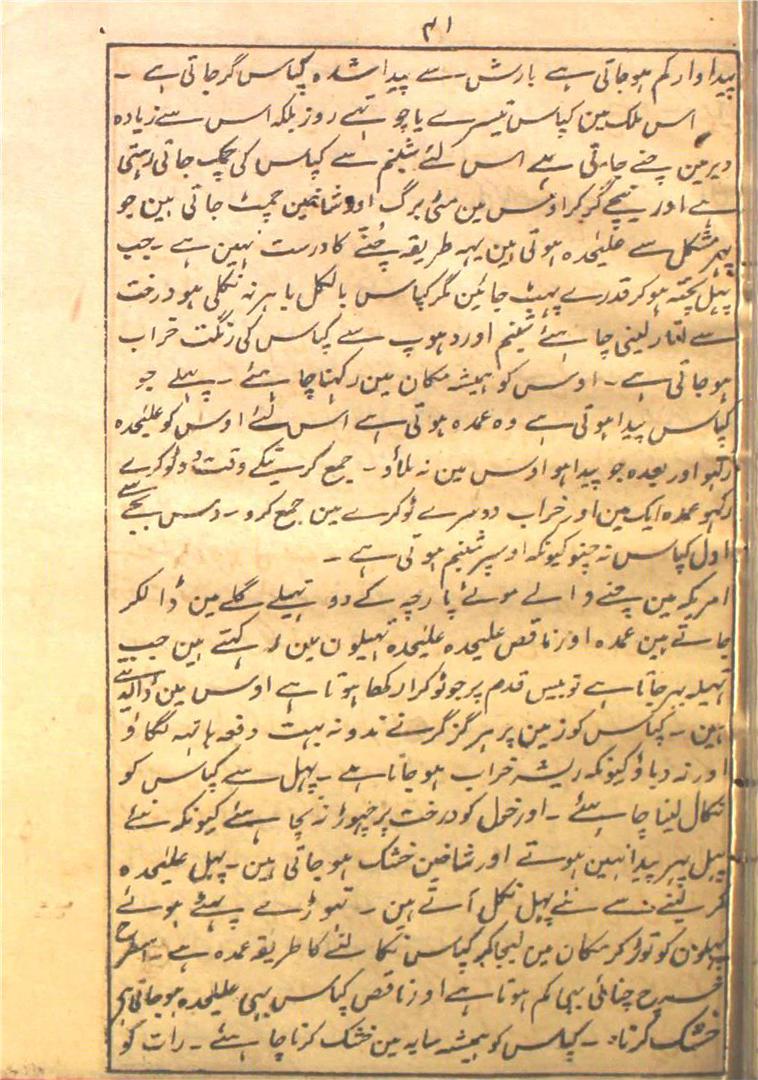 ۴۱
پیداوار کم ہوجاتی ہے بارش سے پیداشدہ کپاس گرجاتی ہے ۔
اس ملک مین کپاس تیسرے یا چوتہے روز بلکہ اس سے زیادہ
دیر مین چنے جاتی ہے اس لئے شبنم سے کپاس کی چمک جاتی رہتی
ہے اور نیچے گر کر اوس مین مٹی برگ اور شاخین چمٹ جاتی ہین جو
پہر مشکل سے علیحدہ ہوتی ہین یہہ طریقہ چننے کا درست نہین ہے ۔ جب
پہل پختہ ہوکر قدرے پہٹ جائین مگر کپاس بالکل باہر نہ نکلی ہو درخت
سے اتار لینی چاہئے شبنم اور دہوپ سے کپاس کی رنگت خراب
ہوجاتی ہے ۔ اوس کو ہمیشہ مکان مین رکہنا چاہئے ۔ پہلے جو
کپاس پیدا ہوتی ہے وہ عمدہ ہوتی ہے اس لئے اوس کو علیحدہ
رکہو اور بعدہ جو پیدا ہو اوس مین نہ ملاؤ ۔ جمع کرتیکے وقت دو ٹوکرے
رکہو عمدہ ایک مین اور خراب دوسرے ٹوکرے مین جمع کرو ۔ دس بجے سے
اول کپاس نہ چنو کیونکہ اوسپر شبنم ہوتی ہے ۔
امریکہ مین چننے والے موٹے پارچہ کے دو تہیلے گلے مین ڈالکر
جاتے ہین عمدہ اور ناقص علیحدہ علیحدہ تہیلون مین رکہتے ہین جب
تہیلہ بہر جاتا ہے تو بیس قدم پر جو ٹوکرا رکہا ہوتا ہے اوس مین ڈالدیتے
ہین ۔ کپاس کو زمین پر ہرگز گرنے ندو نہ بہت دفعہ ہاتہہ لگاؤ
اور نہ دباؤ کیونکہ ریشہ خراب ہوجاتا ہے ۔ پہل سے کپاس کو
نکال لینا چاہئے ۔ اور خول کو درخت پر چہوڑنہ چاہئے کیونکہ نئے
پہل پہر پیدا نہین ہوتے اور شاخین خشک ہوجاتی ہین ۔ پہل علیحدہ
کر لینے سے نئے پہل نکل آتے ہین ۔ تہوڑے پہٹے ہوئے
پہلون کو توڑ کر مکان مین لیجا کر کپاس نکالنے کا طریقہ عمدہ ہے ۔ اسطرح
خرچ چنائی بہی کم ہوتا ہے اور ناقص کپاس بہی علیحدہ ہوجاتی ہے
خشک کرنا ۔ کپاس کو ہمیشہ سایہ مین خشک کرنا چاہئے ۔ رات کو